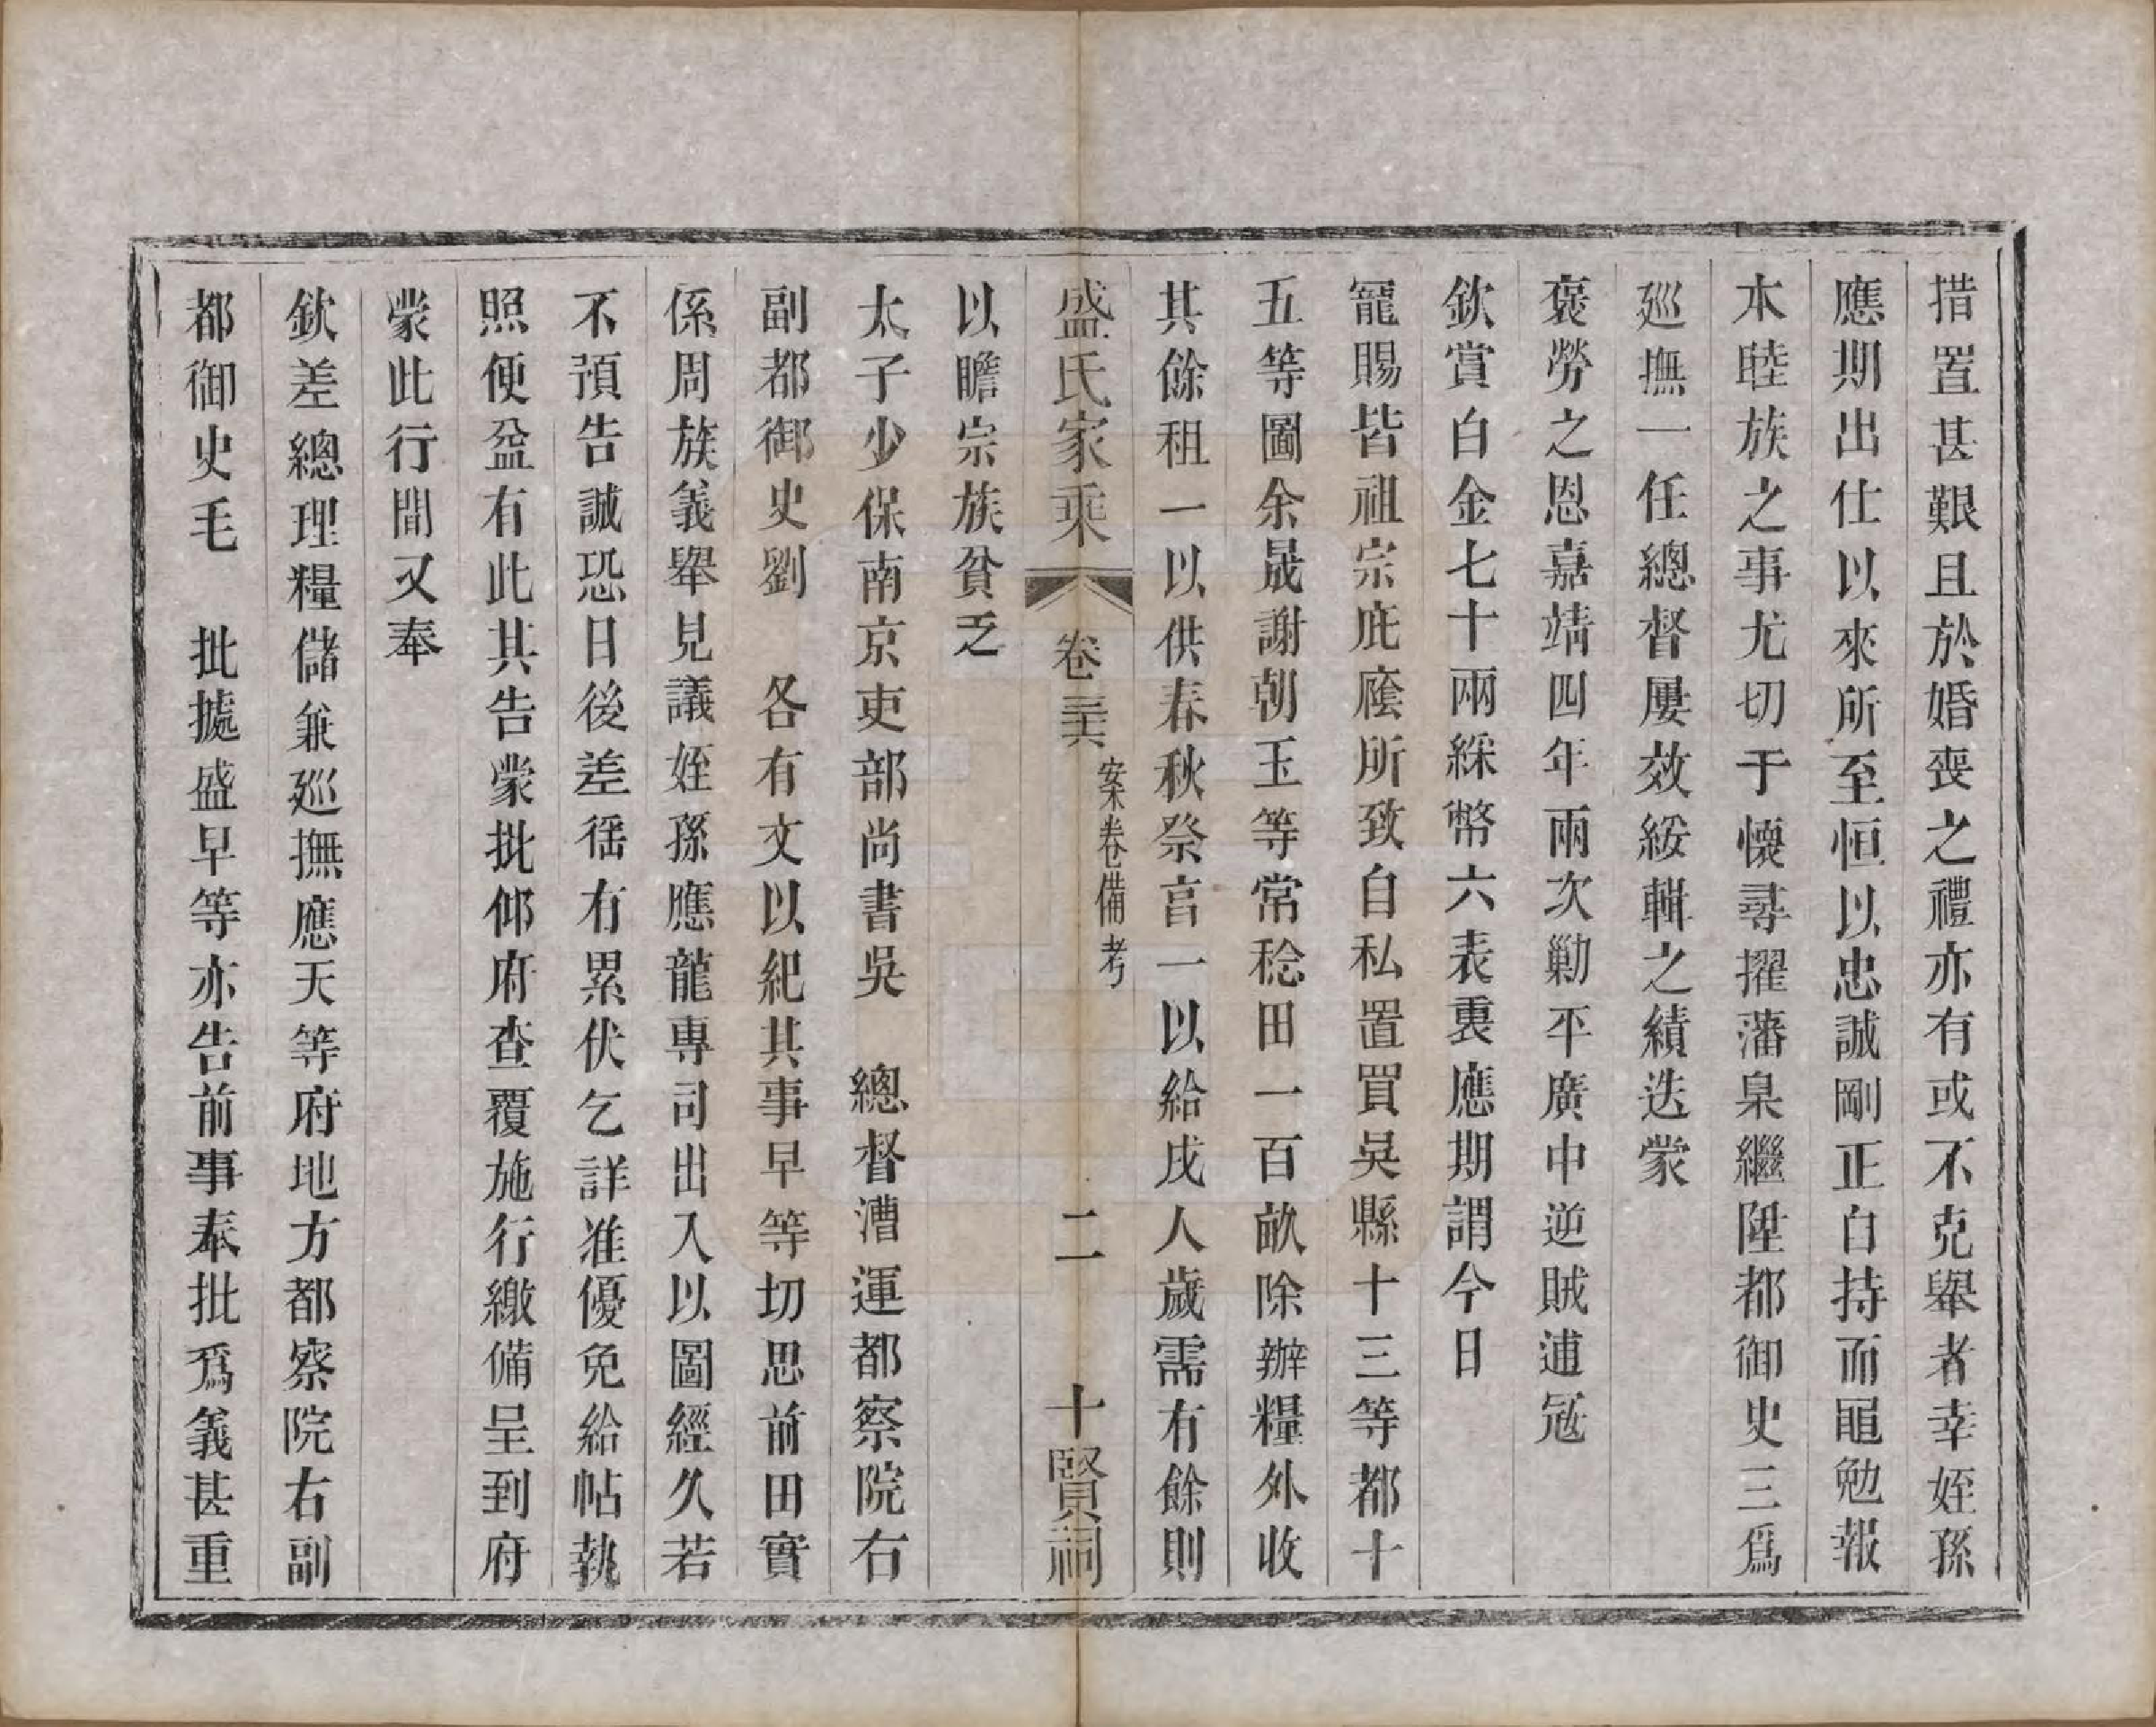 措置甚艱且於婚喪之禮亦有或不克舉者幸姪孫
應期出仕以來所至恒以忠誠剛正自持而黽勉報
本睦族之事尤切于懷尋擢藩臬繼陞都御史三爲
廵撫一任總督屢效綏輯之績迭蒙
褒勞之恩嘉靖四年兩次勦平廣中逆賊逋宼
欽賞白金七十兩綵幣六表裏應期謂今日
寵賜皆祖宗庇廕所致自私置買吳縣十三等都十
五等圖余晟謝朝玉等常稔田一百畝除辦糧外收
其餘租一以供春秋祭亯一以給戌人歲需有餘則
盛氏家乘 卷三六 案卷備考 二 十賢祠
以贍宗族貧乏
太子少保南京吏部尚書吳 總督漕運都察院右
副都御史劉 各有文以紀其事早等切思前田實
係周族義舉見議姪孫應龍專司出入以圖經久若
不預告誠恐日後差徭有累伏乞詳准優免給帖執
照便益有此其告蒙批仰府查覆施行繳備呈到府
蒙此行間又奉
欽差總理糧儲兼廵撫應天等府地方都察院右副
都御史毛 批據盛早等亦告前事奉批爲義甚重